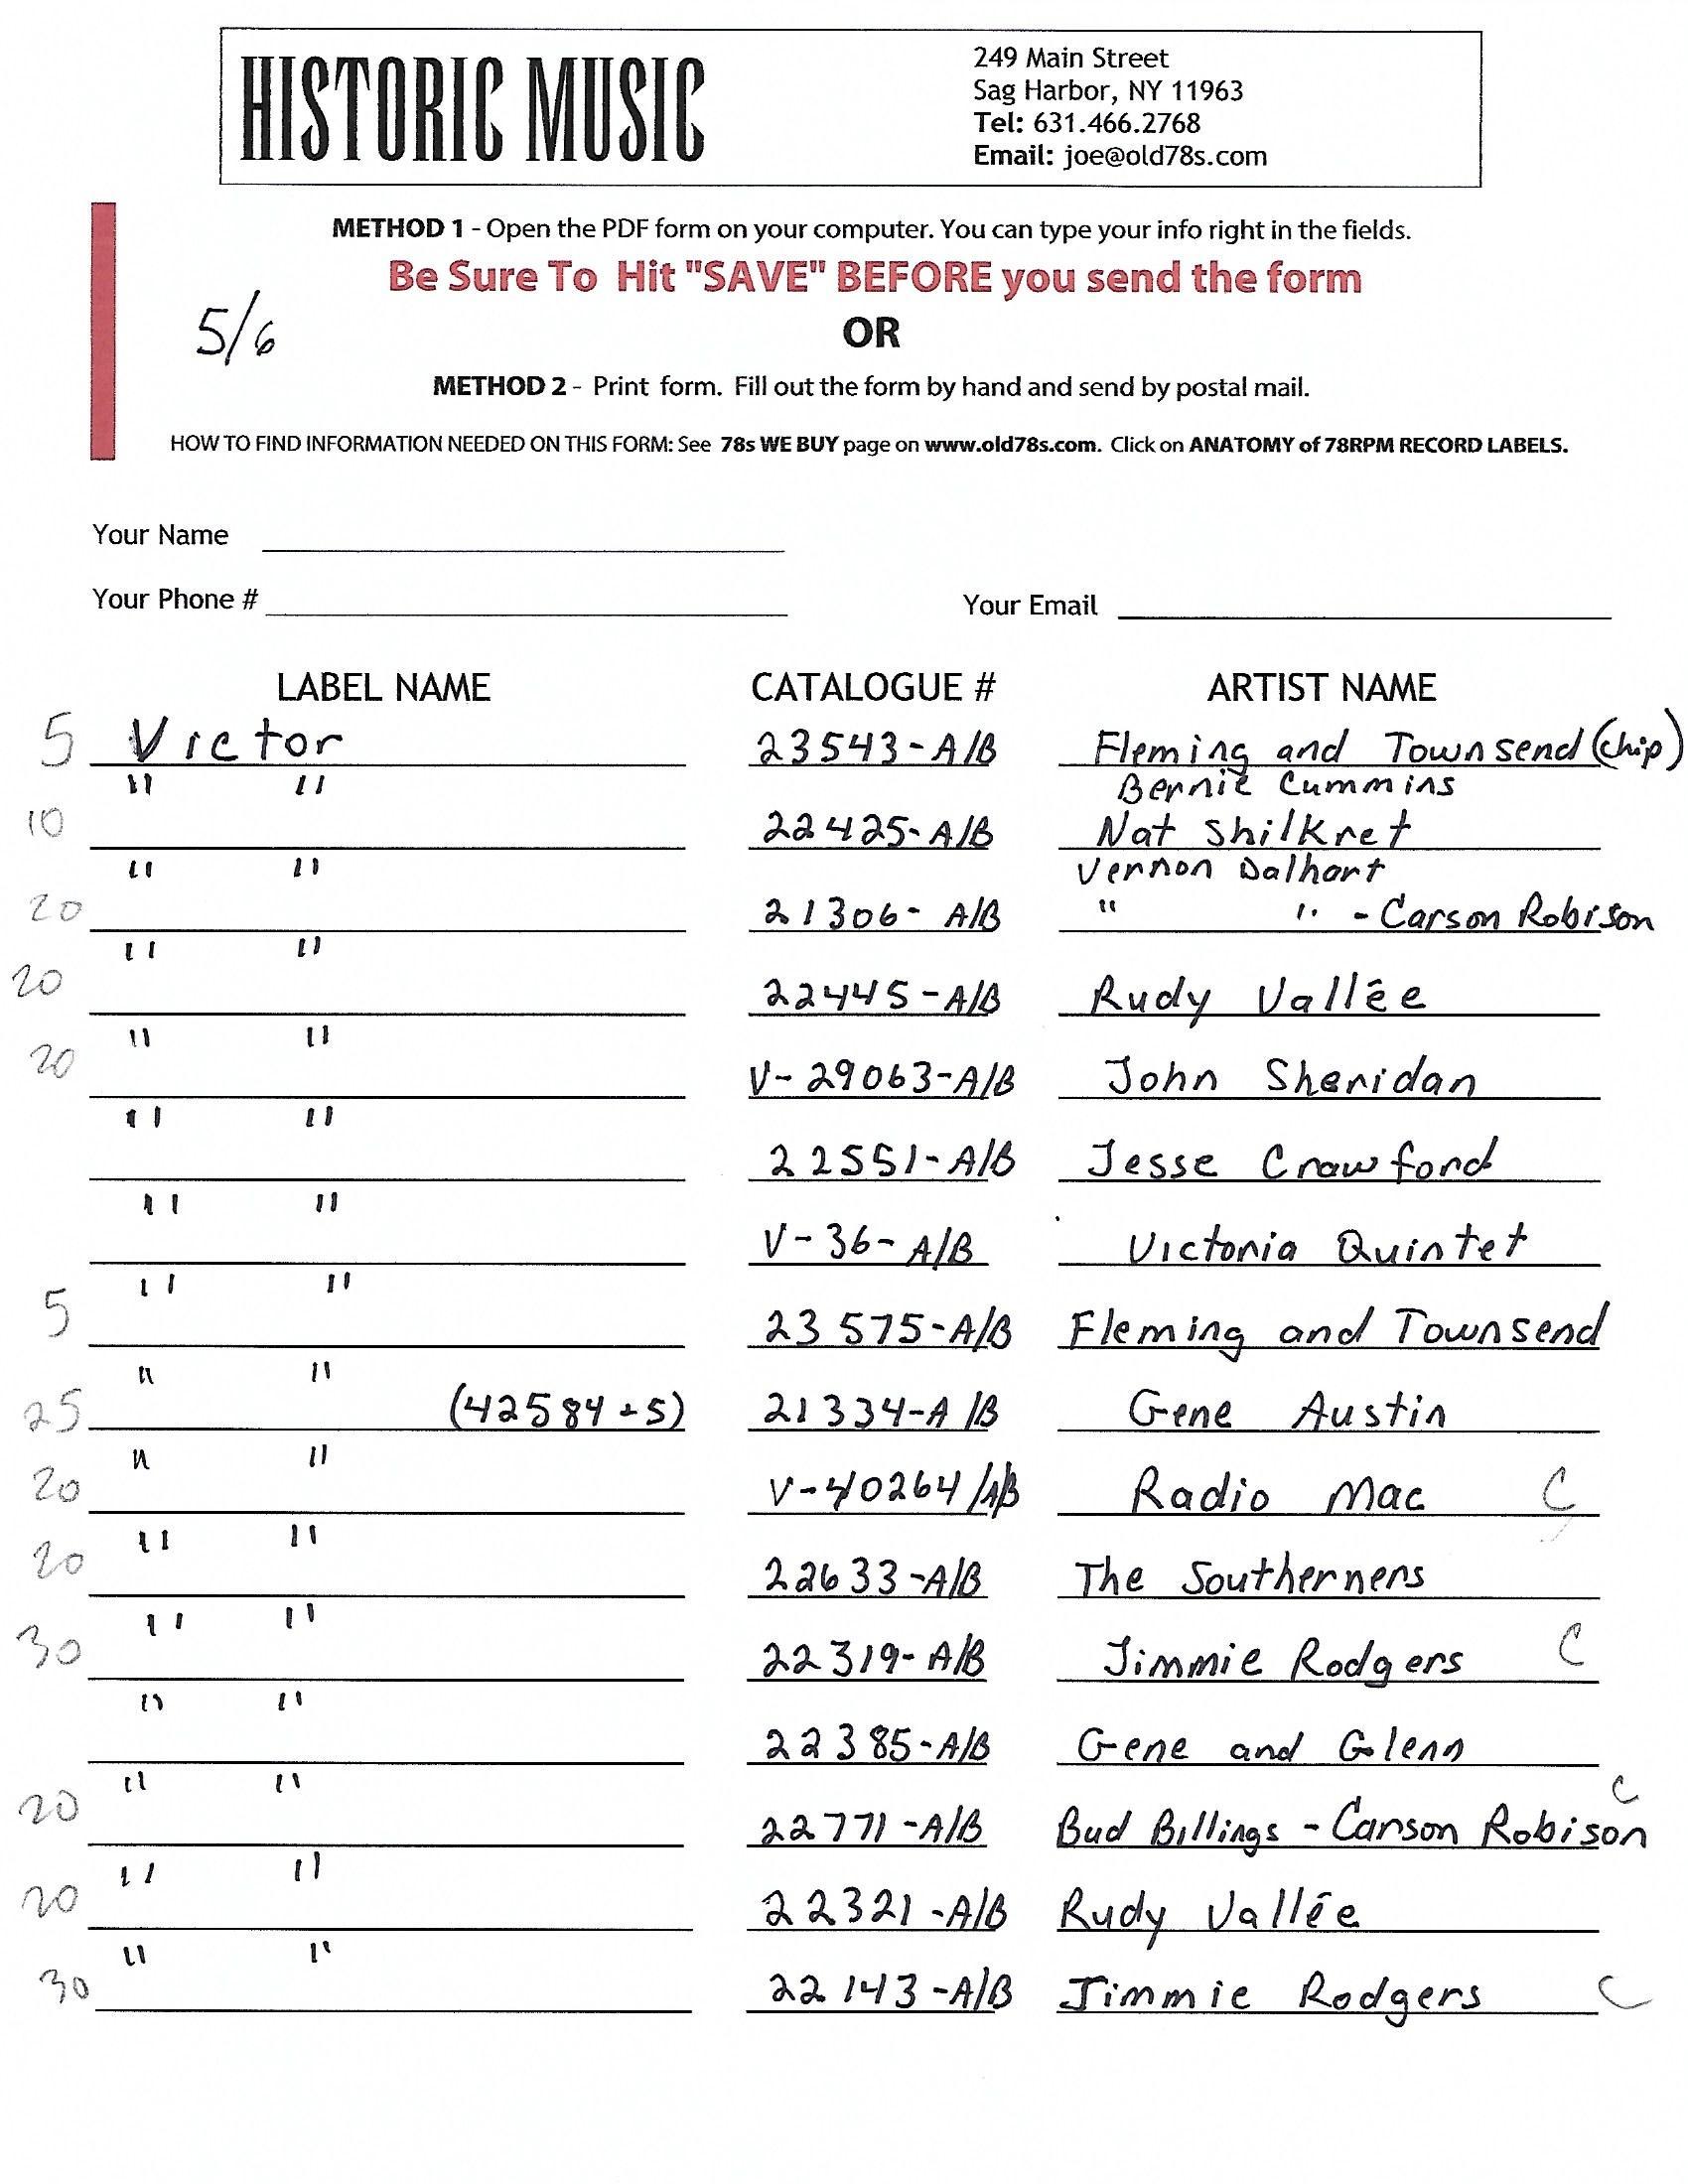 HISTORIC MUSIC
249 Main Street
Sag Harbor, NY 11963
Tel: 631.466.2768
Email: joe@old78s.com
METHOD 1 - Open the PDF form on your computer. You can type your info right in the fields.
Be Sure To Hit "SAVE" BEFORE you send the form
5/6
OR
METHOD 2 - Print form. Fill out the form by hand and send by postal mail.
HOW TO FIND INFORMATION NEEDED ON THIS FORM: See 78s WE BUY page on www.old78s.com. Click on ANATOMY of 78RPM RECORD LABELS.
Your Name
Your Phone # Your Email
LABEL NAME CATALOGUE # ARTIST NAME
5 Victor 23543-A/B Fleming and Townsend (chip)
" " Bernie Cummins
10 22425-A/B Nat Shilkret
" " Vernon Dalhart
20 21306-A/B " " - Carson Robison
" "
20 22445-A/B Rudy Vallée
" "
20 V-29063-A/B John Sheridan
" "
22551-A/B Jesse Crawford
" "
V-36-A/B Victoria Quintet
" "
5 23575-A/B Fleming and Townsend
" "
25 (42584-5) 21334-A/B Gene Austin
" "
20 V-40264/A/B Radio Mac C
" "
20 22633-A/B The Southerners
" "
30 22319-A/B Jimmie Rodgers C
" "
22385-A/B Gene and Glenn
" " C
20 22771-A/B Bud Billings - Carson Robison
" "
20 22321-A/B Rudy Vallée
" "
30 22143-A/B Jimmie Rodgers C